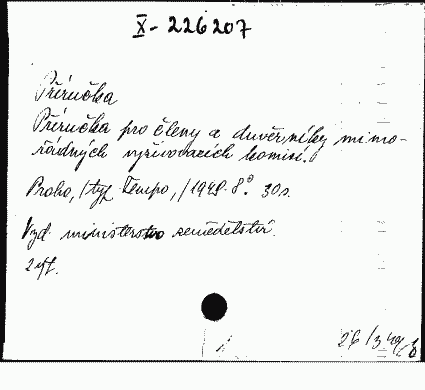 X-226207
Příručka
Příručka pro členy a důvěrníky mimo-
řádných vyživovacích komisí.
Praha, /typ. Tempo, / 1949. 8°. 30 s.
Vyd. ministerstvo zemědělství.
26/3